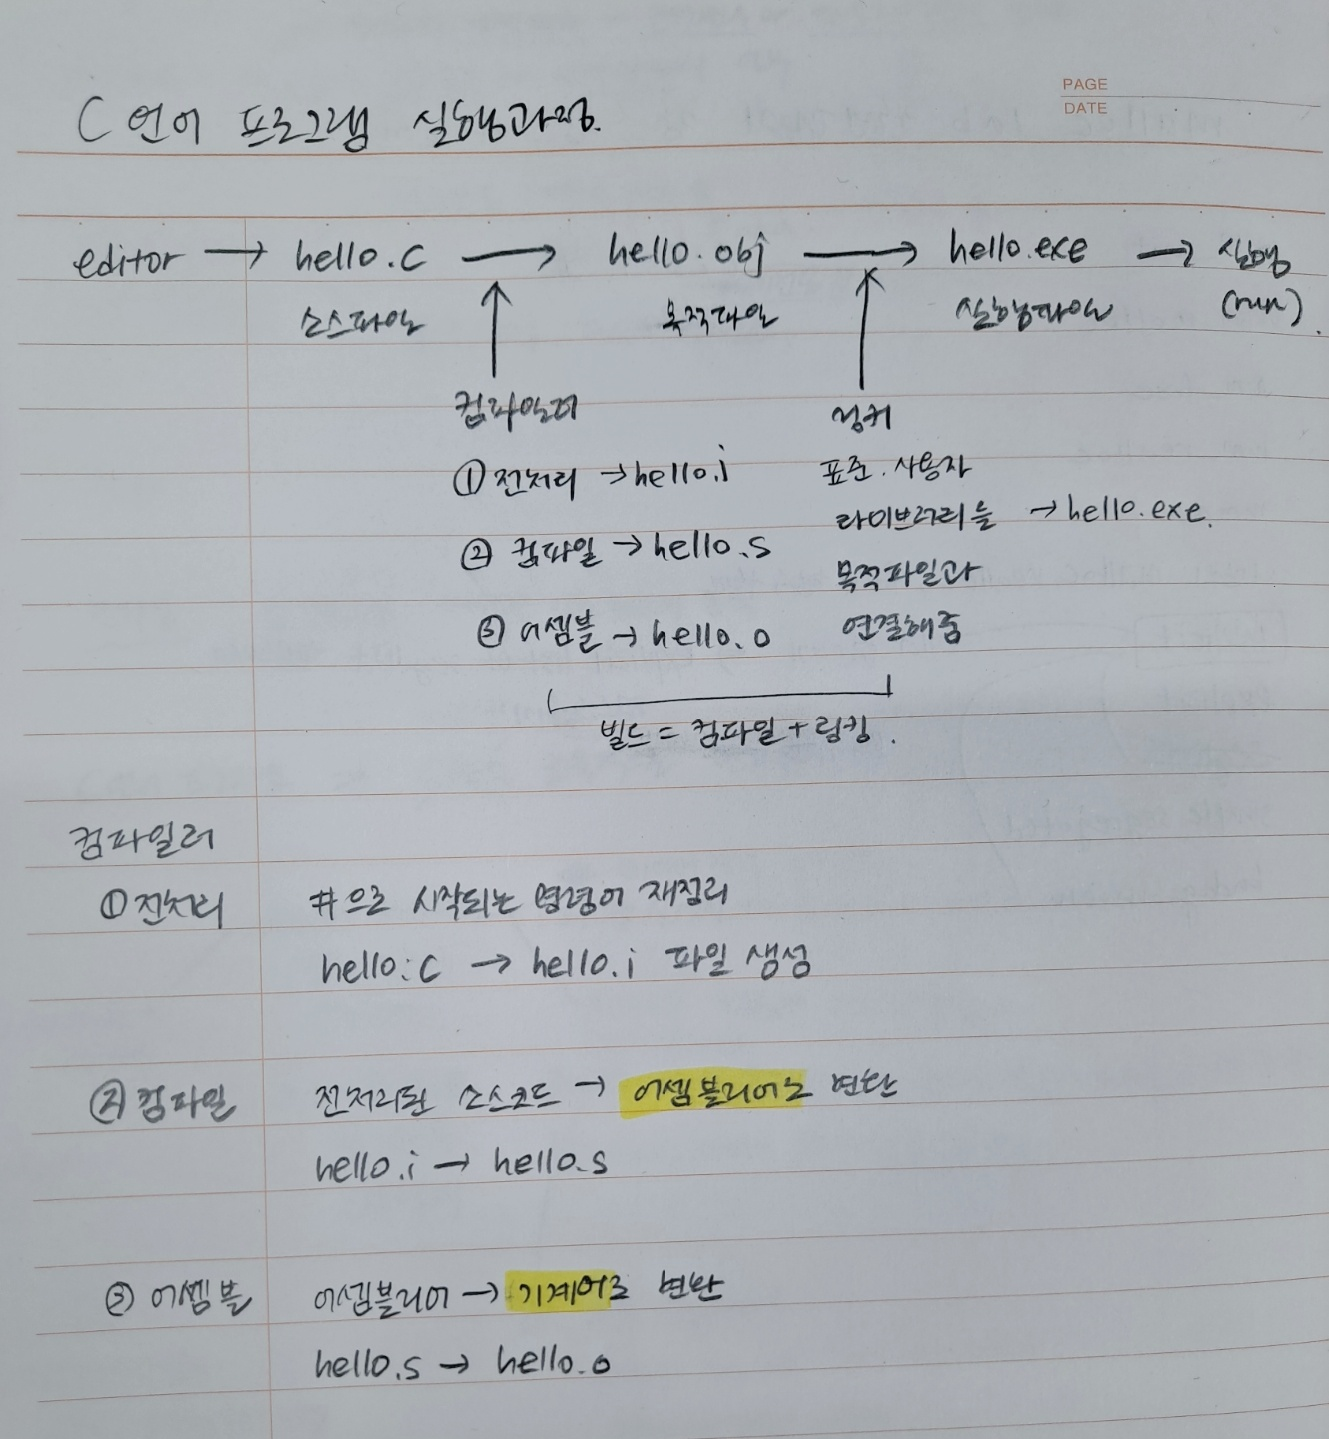 PAGE
DATE
C 언어 프로그램 실행과정.
editor → hello.c → hello.obj → hello.exe → 실행
소스파일 목적파일 실행파일 (run).
컴파일러 링커
① 전처리 → hello.i 표준.사용자
라이브러리를 → hello.exe.
② 컴파일 → hello.s
목적파일과
③ 어셈블 → hello.o 연결해줌
빌드 = 컴파일 + 링킹.
컴파일러
① 전처리 #으로 시작되는 명령어 재정리
hello.c → hello.i 파일 생성
② 컴파일 전처리된 소스코드 → 어셈블리어로 변환
hello.i → hello.s
③ 어셈블 어셈블리어 → 기계어로 변환
hello.s → hello.o